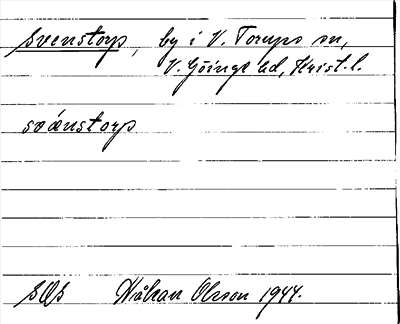 Svenstorp, by i V. Torups sn,
V. Göinge hd, Krist. l.
svänstorp
SOS Håkan Olsson 1944.